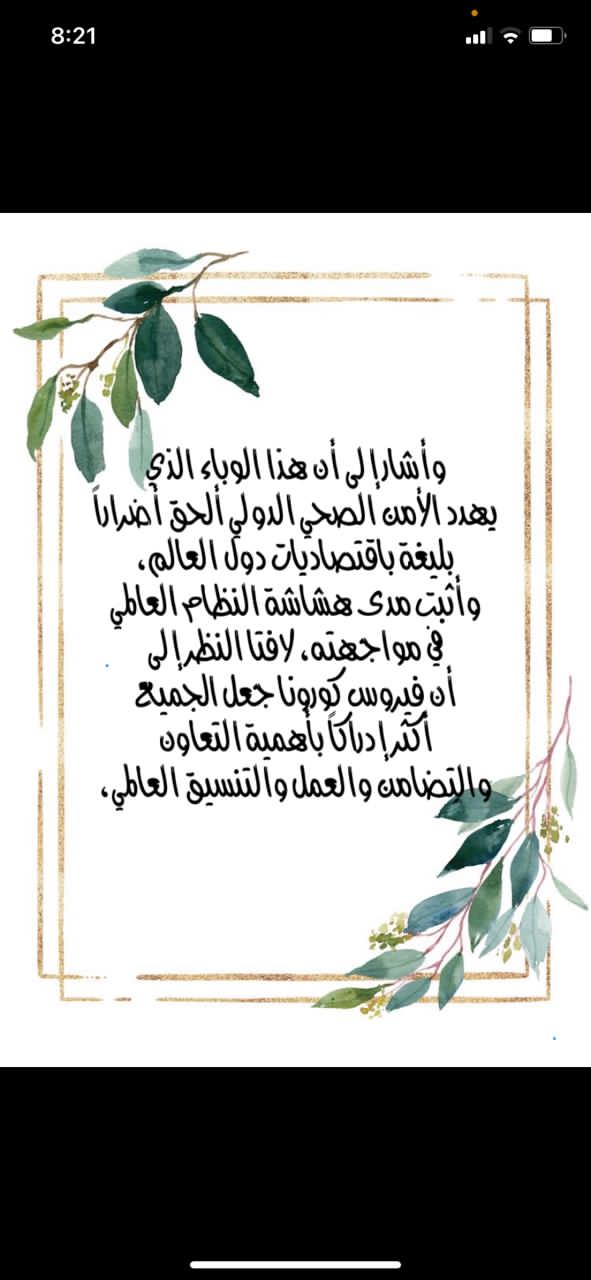 8:21
وأشار إلى أن هذا الوباء الذي
يهدد الأمن الصحي الدولي ألحق أضراراً
بليغة باقتصاديات دول العالم،
وأثبت مدى هشاشة النظام العالمي
في مواجهته، لافتا النظر إلى
أن فيروس كورونا جعل الجميع
أكثر إدراكاً بأهمية التعاون
والتضامن والعمل والتنسيق العالمي،